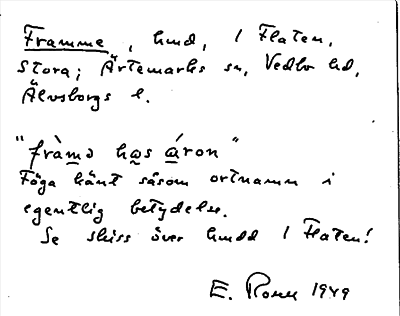 Framme, hmd, i Flaten,
Stora; Ärtemarks sn, Vedbo hd,
Älvsborgs l.
"fràmə has áron"
Föga känt såsom ortnamn i
egentlig betydelse.
Se skiss över hmdd i Flaten!
E. 1949